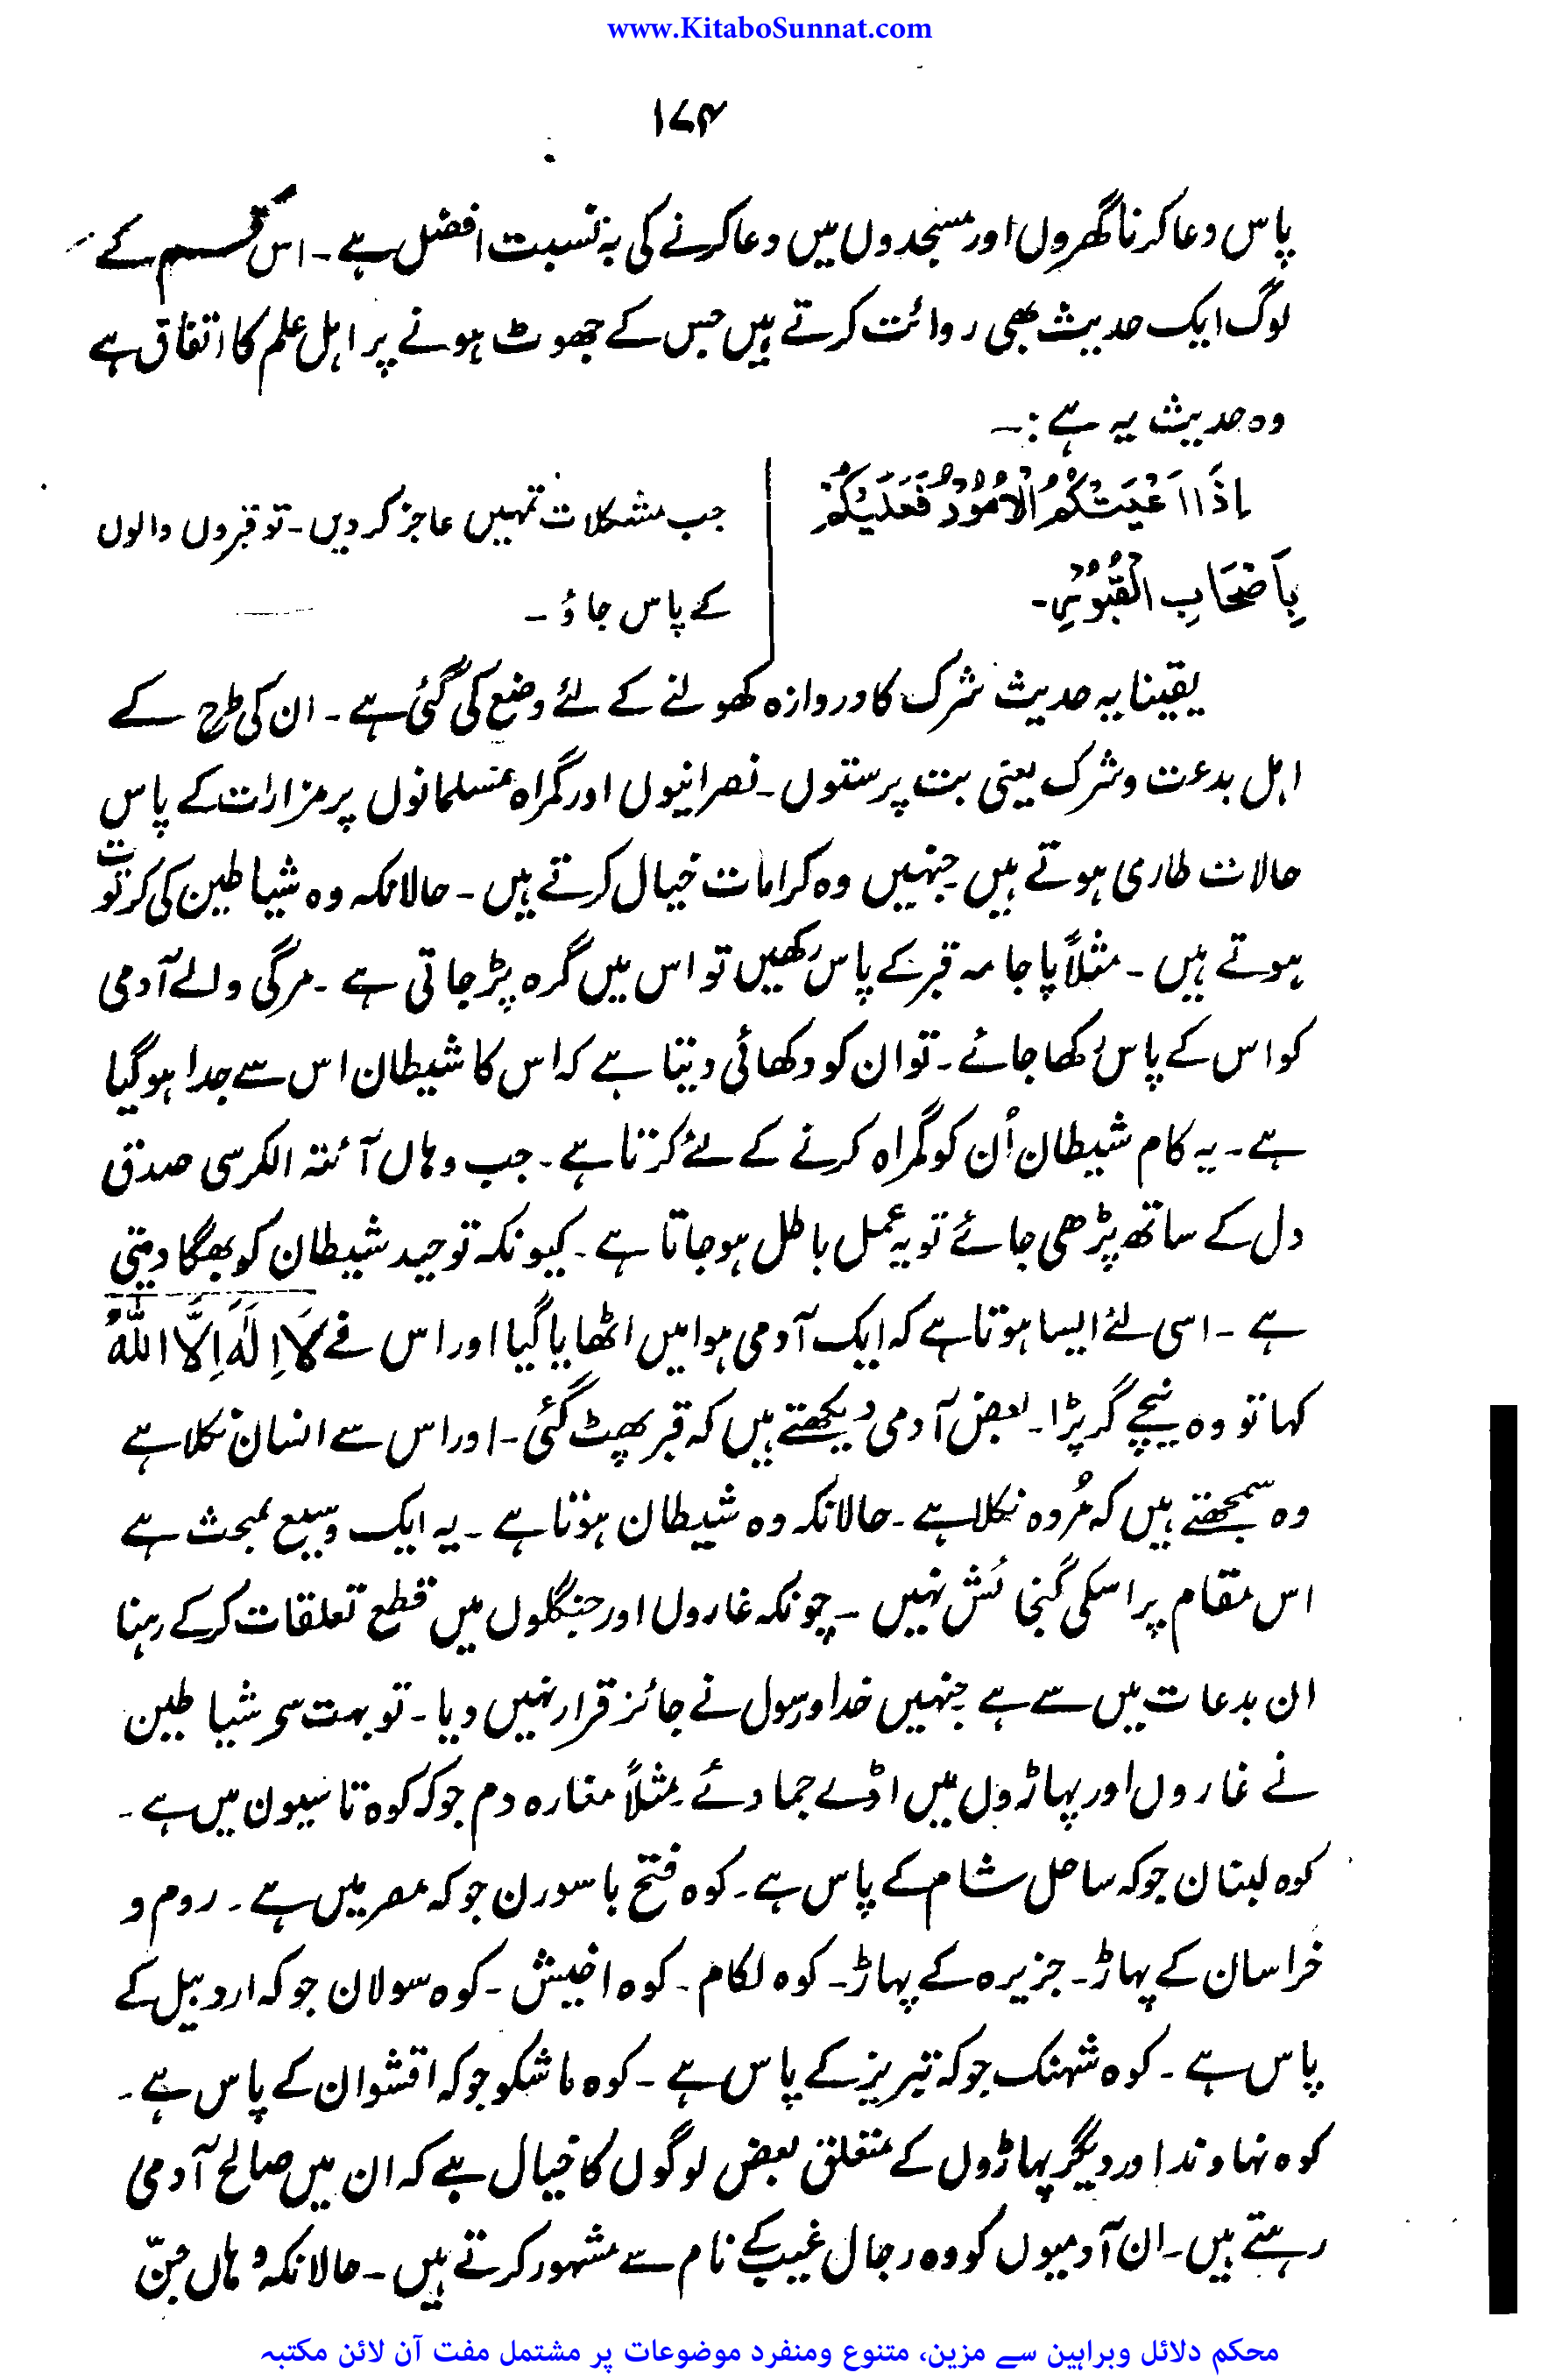 www.KitaboSunnat.com
۱۷۴
پاس دعا کرنا گھروں اور مسجدوں میں دعا کرنے کی بہ نسبت افضل ہے۔ اس قسم کے
لوگ ایک حدیث بھی روائت کرتے ہیں جس کے جھوٹ ہونے پر اہل علم کا اتفاق ہے
وہ حدیث یہ ہے :۔
اِذَا اَعْيَتْكُمُ الْاُمُوْرُ فَعَلَيْكُمْ
بِاَصْحَابِ الْقُبُوْرِ۔
جب مشکلات تمہیں عاجز کر دیں۔ تو قبروں والوں
کے پاس جاؤ۔
یقینا یہ حدیث شرک کا دروازہ کھولنے کے لئے وضع کی گئی ہے۔ ان کی طرح کے
اہل بدعت و شرک یعنی بت پرستوں۔ نصرانیوں اور گمراہ مسلمانوں پر مزارات کے پاس
حالات طاری ہوتے ہیں جنہیں وہ کرامات خیال کرتے ہیں۔ حالانکہ وہ شیاطین کی کرتوت
ہوتے ہیں۔ مثلاً پاجامہ قبر کے پاس رکھیں تو اس میں گرہ پڑ جاتی ہے۔ مرگی والے آدمی
کو اس کے پاس رکھا جائے۔ تو ان کو دکھائی دیتا ہے کہ اس کا شیطان اس سے جدا ہو گیا
ہے۔ یہ کام شیطان اُن کو گمراہ کرنے کے لئے کرتا ہے۔ جب وہاں آئتہ الکرسی صدق
دل کے ساتھ پڑھی جائے تو یہ عمل باطل ہو جاتا ہے۔ کیونکہ توحید شیطان کو بھگا دیتی
ہے۔ اسی لئے ایسا ہوتا ہے کہ ایک آدمی ہوا میں اٹھایا گیا اور اس نے لَا اِلٰهَ اِلَّا اللّٰهُ
کہا تو وہ نیچے گر پڑا۔ بعض آدمی دیکھتے ہیں کہ قبر پھٹ گئی۔ اور اس سے انسان نکلا ہے
وہ سمجھتے ہیں کہ مُردہ نکلا ہے۔ حالانکہ وہ شیطان ہوتا ہے۔ یہ ایک وسیع مبحث ہے
اس مقام پر اسکی گنجائش نہیں۔ چونکہ غاروں اور جنگلوں میں قطع تعلقات کر کے رہنا
ان بدعات میں سے ہے جنہیں خدا و رسول نے جائز قرار نہیں دیا۔ تو بہت سے شیاطین
نے غاروں اور پہاڑوں میں اڈے جما دئے۔ مثلاً مغارہ دم جو کہ کوہ تاسیون میں ہے۔
کوہ لبنان جو کہ ساحل شام کے پاس ہے۔ کوہ فتح باسورن جو کہ مصر میں ہے۔ روم و
خراسان کے پہاڑ۔ جزیرہ کے پہاڑ۔ کوہ لکام۔ کوہ اخیش۔ کوہ سولان جو کہ اردبیل کے
پاس ہے۔ کوہ شہنک جو کہ تبریز کے پاس ہے۔ کوہ ماشکو جو کہ اقشوان کے پاس ہے۔
کوہ نہاوند اور دیگر پہاڑوں کے متعلق بعض لوگوں کا خیال ہے کہ ان میں صالح آدمی
رہتے ہیں۔ ان آدمیوں کو وہ رجال غیب کے نام سے مشہور کرتے ہیں۔ حالانکہ وہاں جنّ
محکم دلائل وبراہین سے مزین، متنوع ومنفرد موضوعات پر مشتمل مفت آن لائن مکتبہ